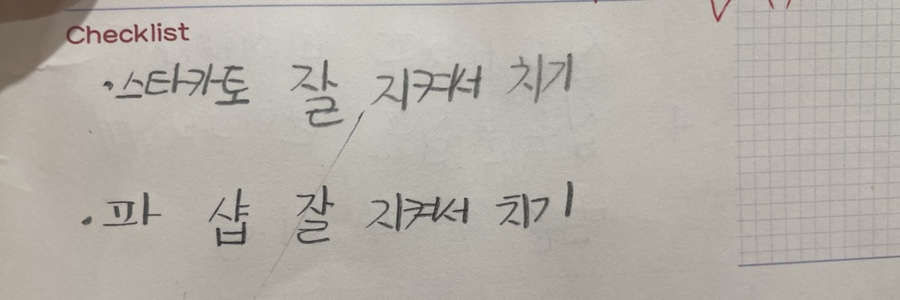 Checklist
· 스타카토 잘 지켜서 치기
· 파 샵 잘 지켜서 치기